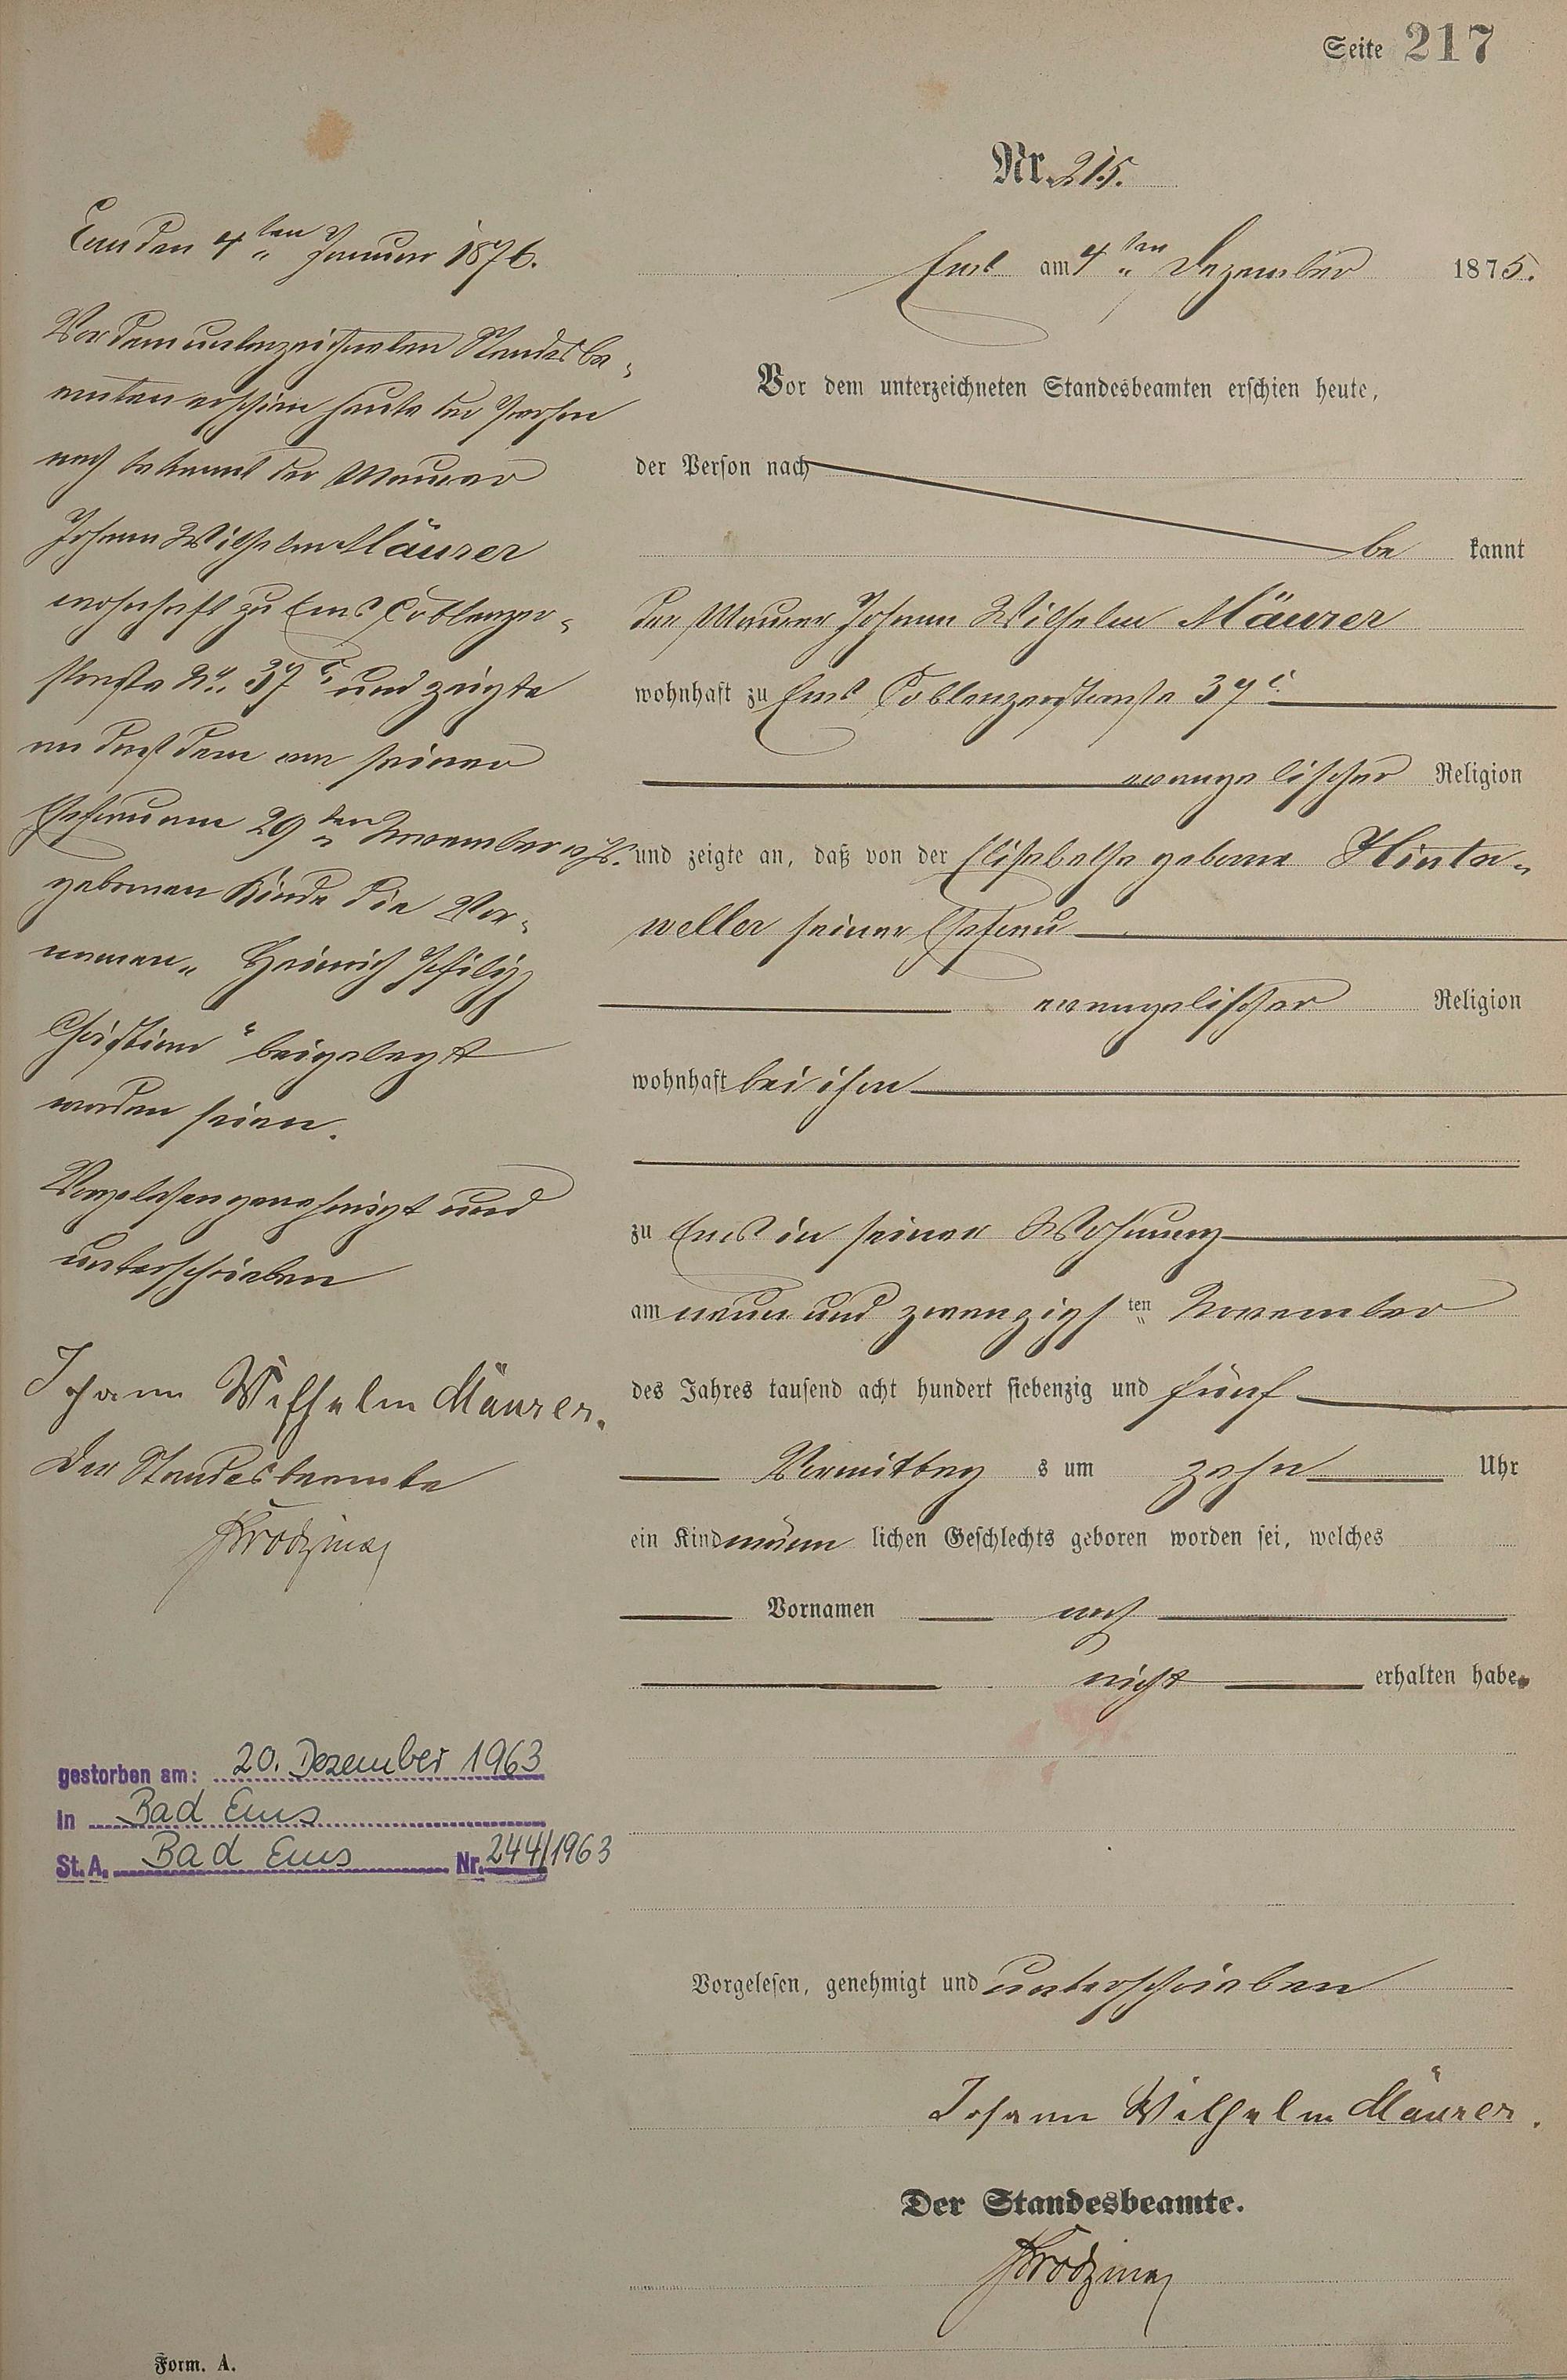 Seite 217
Nr. 215.
Ems am 4ten Dezember 1875.
Vor dem unterzeichneten Standesbeamten erschien heute,
der Person nach
be kannt
der Maurer Johann Wilhelm Mäurer
wohnhaft zu Ems Coblenzerstraße 37c
evangelischer Religion
und zeigte an, daß von der Elisabethe geborne Hinter-
weller seiner Ehefrau
evangelischer Religion
wohnhaft bei ihm
zu Ems in seiner Wohnung
am neun und zwanzigsten November
des Jahres tausend acht hundert siebenzig und fünf
Vormittag s um zehn Uhr
ein Kind männ lichen Geschlechts geboren worden sei, welches
Vornamen noch
nicht erhalten habe.
Vorgelesen, genehmigt und unterschrieben
Johann Wilhelm Mäurer.
Der Standesbeamte.
Ems den 4ten Januar 1876.
Vor dem unterzeichneten Standesbe-
amten erschien heute der Person
nach bekannt der Maurer
Johann Wilhelm Mäurer
wohnhaft zu Ems Coblenzer-
straße No. 37c und zeigte
an daß dem von seiner
Ehefrau am 29ten November v. Js.
gebornen Kinde die Vor-
namen „Heinrich Philipp
Christian" beigelegt
worden seien.
Vorgelesen genehmigt und
unterschrieben
Johann Wilhelm Mäurer.
Der Standesbeamte
gestorben am: 20. Dezember 1963
in Bad Ems
St. A. Bad Ems Nr. 244/1963
Form. A.